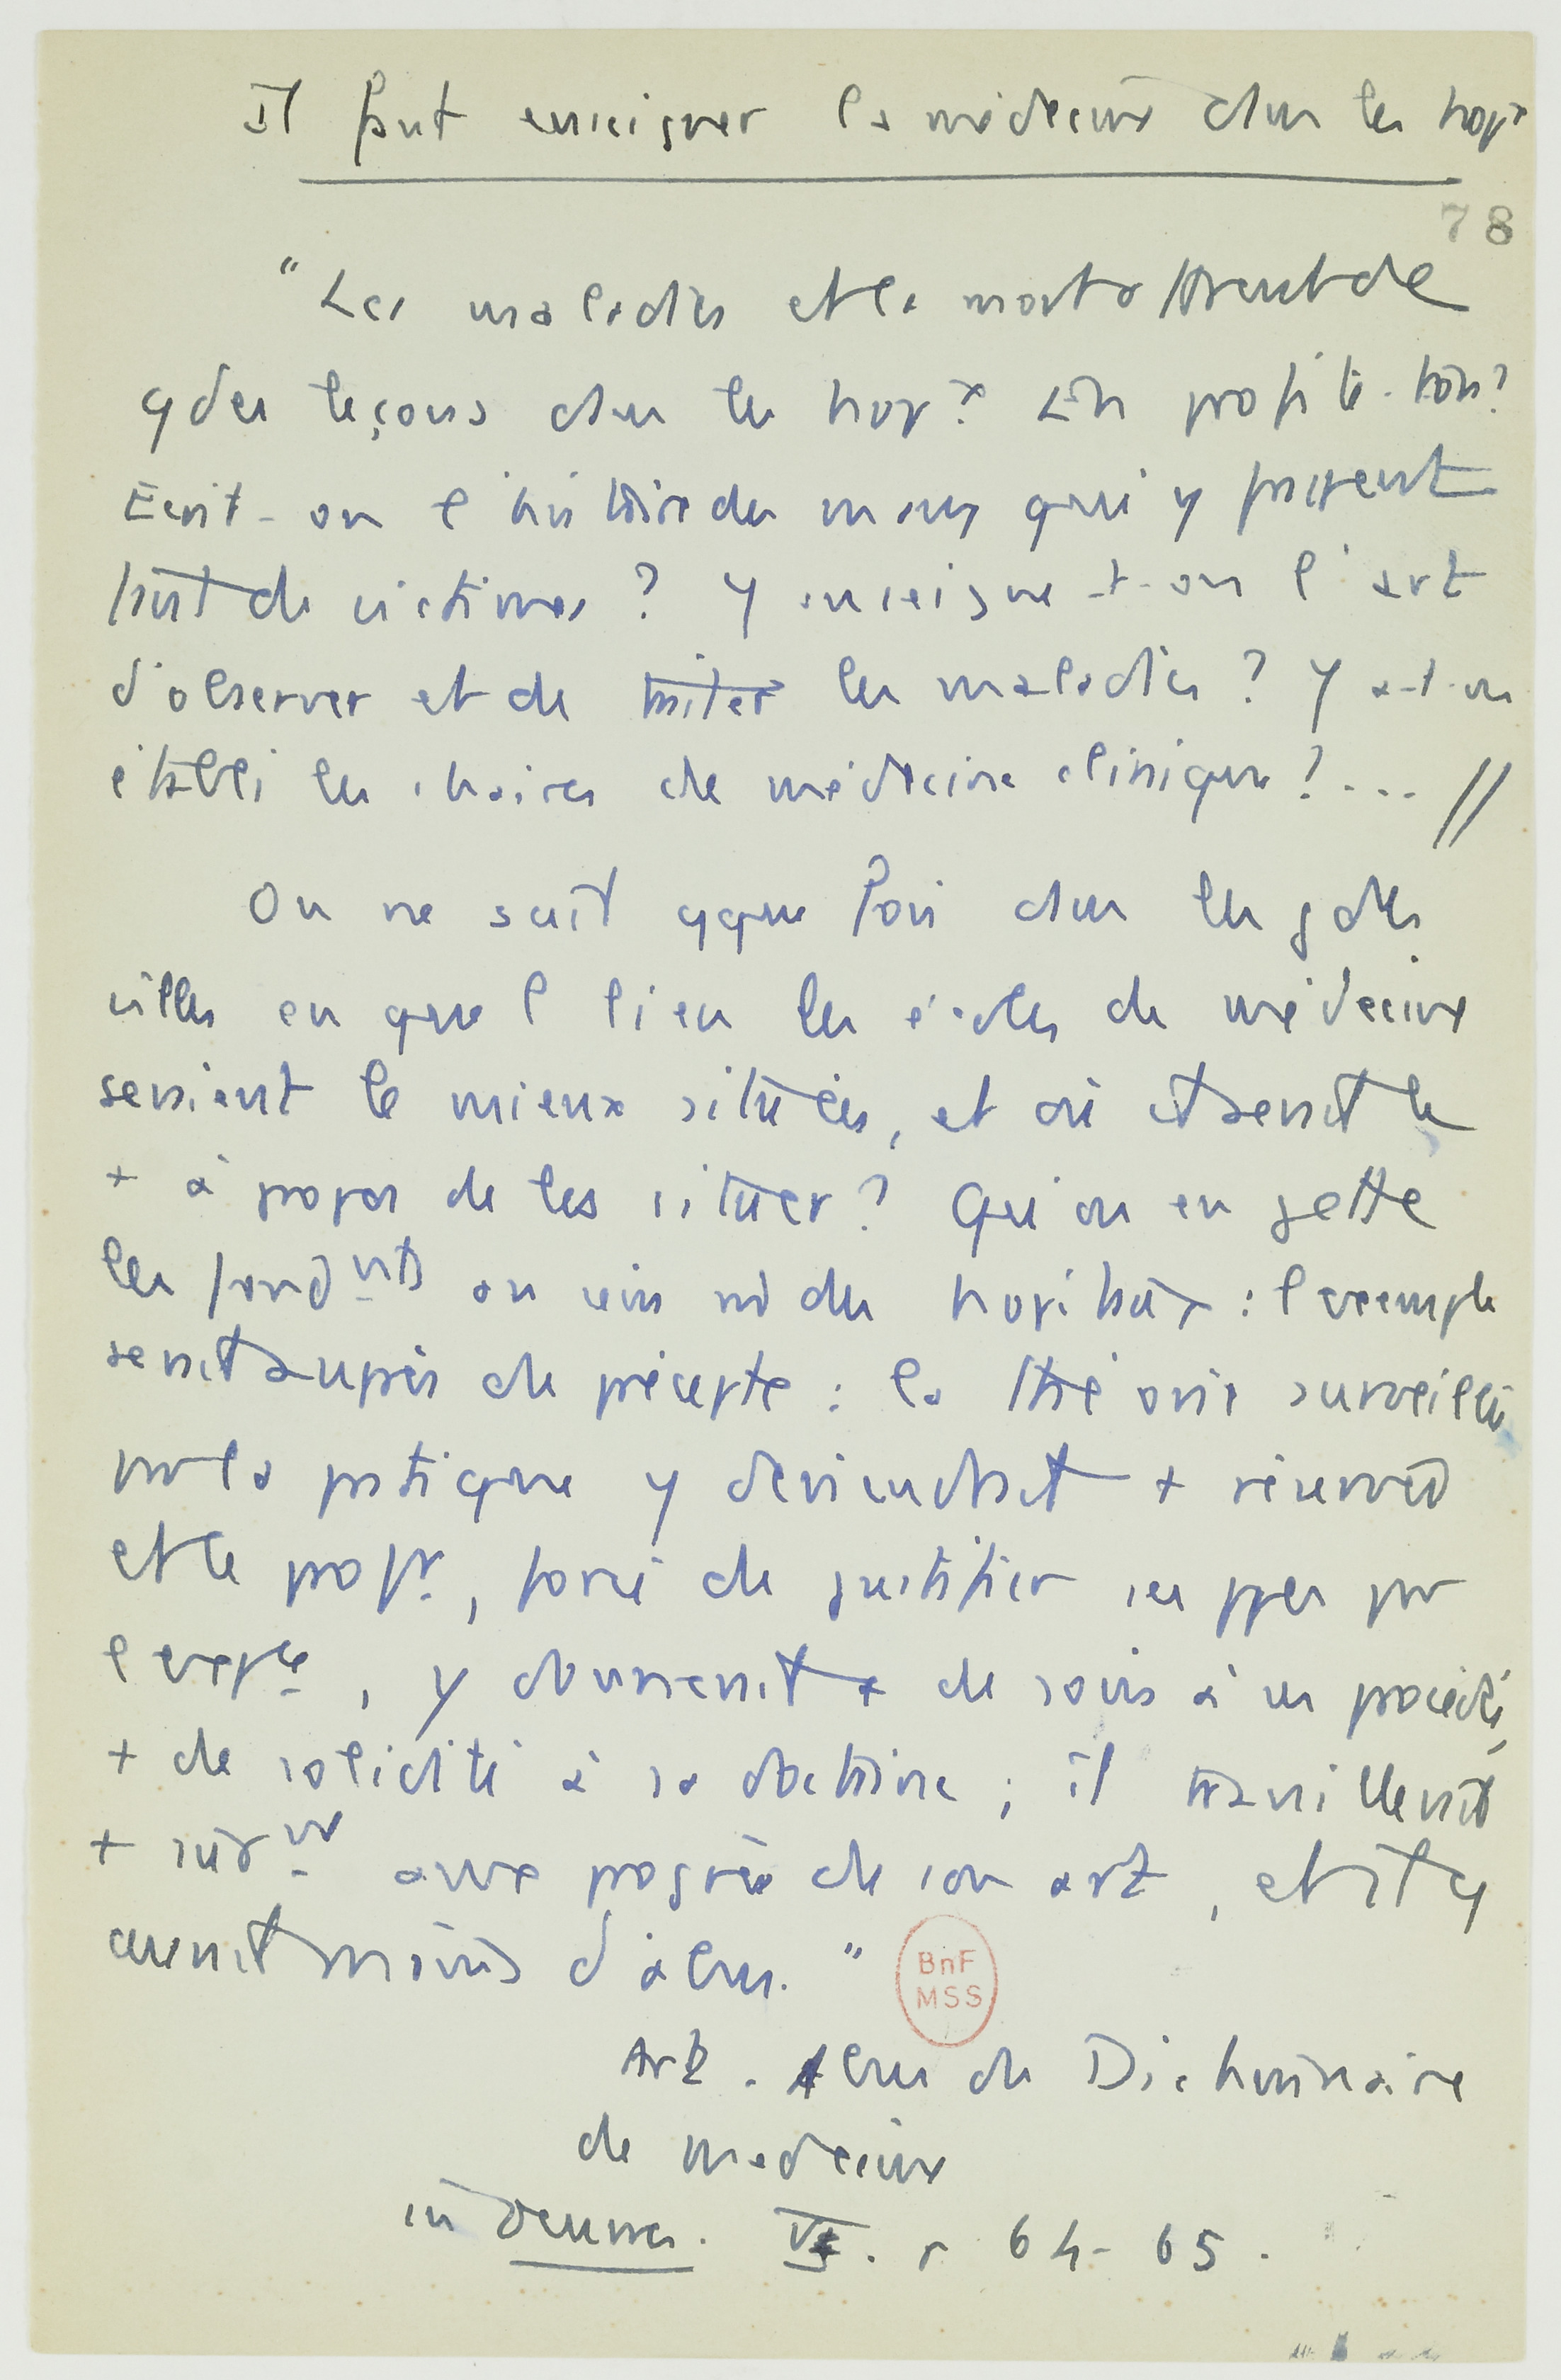 Il faut enseigner la médecine dans les hopx
78
"Les maladies et la mort offrent de
gdes leçons dans les hopx. En profite-t-on?
Ecrit-on l'histoire des maux qui y frappent
tant de victimes? Y enseigne-t-on l'art
d'observer et de traiter les maladies? Y a-t-on
établi les chaires de médecine clinique?... //
On ne sait qque fois dans les gdes
villes en quel lieu les écoles de médecine
seraient le mieux situées, et où il serait le
+ à propos de les situer? Qu'on en jette
les fondmts au sein md des hopitaux : l'exemple
serait auprès du précepte : la théorie surveillée
par la pratique y deviendrait + réservée
et le profr, forcé de justifier ses ppes par
l'exeple, y donnerait + de soins à ses procédés,
+ de solidité à sa doctrine ; il travaillerait
+ surmt aux progrès de son art, et il y
aurait moins d'abus."
BnF
MSS
Art. Abus du Dictionnaire
de medecine
in Oeuvres. VI. p 64-65.